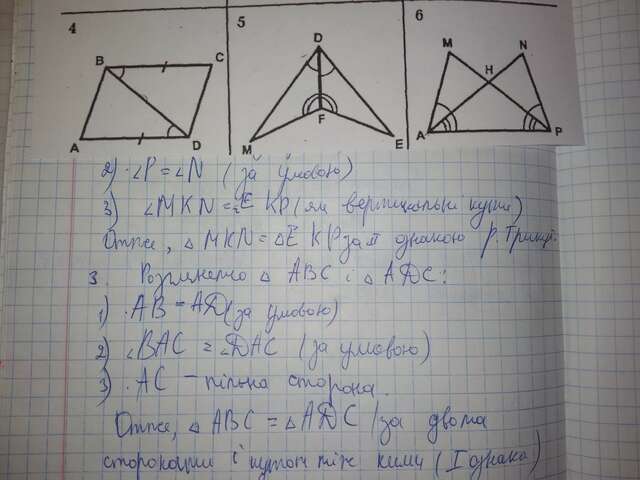 4
5
6
B
C
A
D
D
F
M
E
M
N
H
A
P
2) ∠P = ∠N (за умовою)
3) ∠MKN = ∠EKP (як вертикальні кути)
Отже, △ MKN = △ EKP за II ознакою р. трикут.
3. Розглянемо △ ABC і △ ADC:
1) AB = AD (за умовою)
2) ∠BAC = ∠DAC (за умовою)
3) AC – спільна сторона.
Отже, △ ABC = △ ADC (за двома
сторонами і кутом між ними (I ознака)